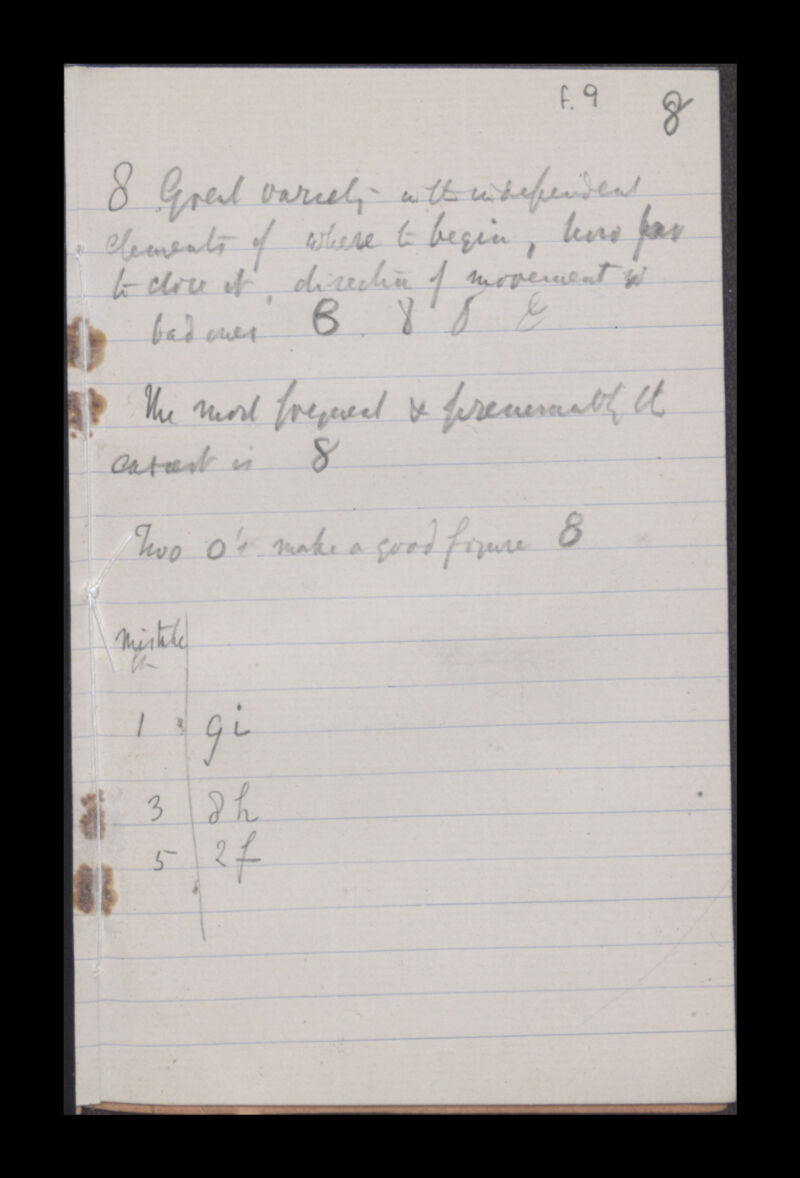 f. 9 8
8 Great variety with independent
elements of where to begin, how far
to close it, direction of movement &
bad ones 8 8 8 8
The most frequent & presumably the
easiest is 8
Two 0's make a good figure 8
Mistake
1 9 i
3 8 h
5 2 f